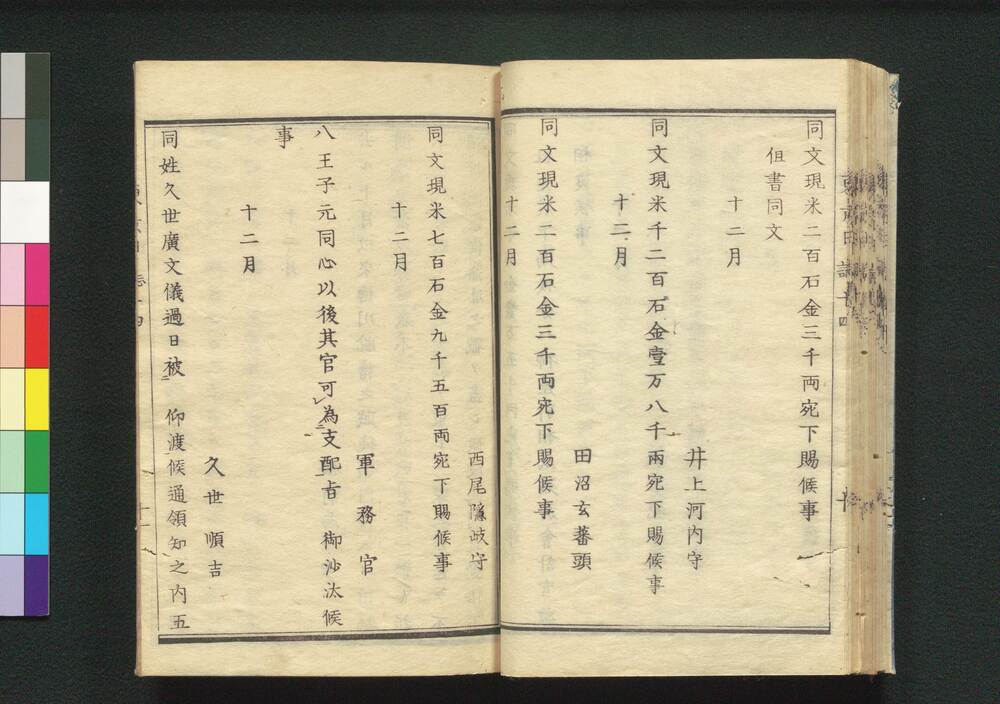 同文現米二百石金三千両宛下賜候事
但書同文
十二月
井上河内守
同文現米千二百石金壹万八千兩宛下賜候事
十二月
田沼玄蕃頭
同文現米二百石金三千両宛下賜候事
十二月
西尾隱岐守
同文現米七百石金九千五百両宛下賜候事
十二月
軍務官
八王子元同心以後其官可為支配旨 御沙汰候
事
十二月
久世順吉
同姓久世廣文儀過日被 仰渡候通領知之内五